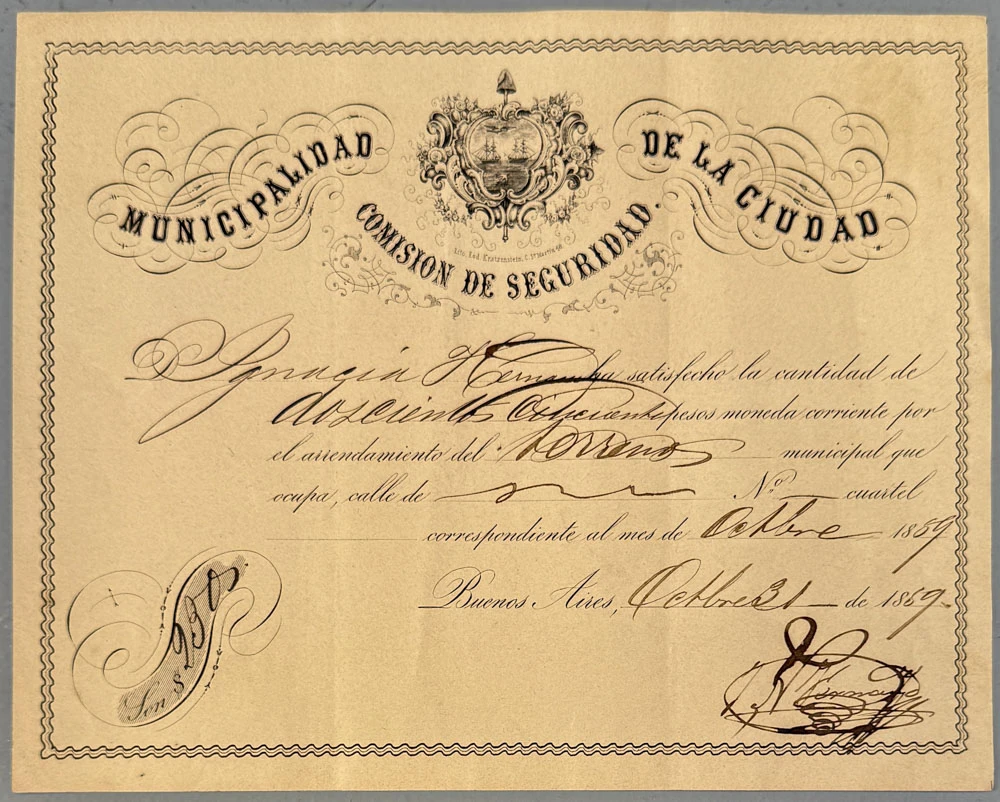 MUNICIPALIDAD DE LA CIUDAD
COMISION DE SEGURIDAD.
Ygnacia ha satisfecho la cantidad de
doscientos pesos moneda corriente por
el arrendamiento del terreno municipal que
ocupa, calle de Nº cuartel
correspondiente al mes de Octbre 1859
Buenos Aires, Octbre 31 de 1859.
Son $